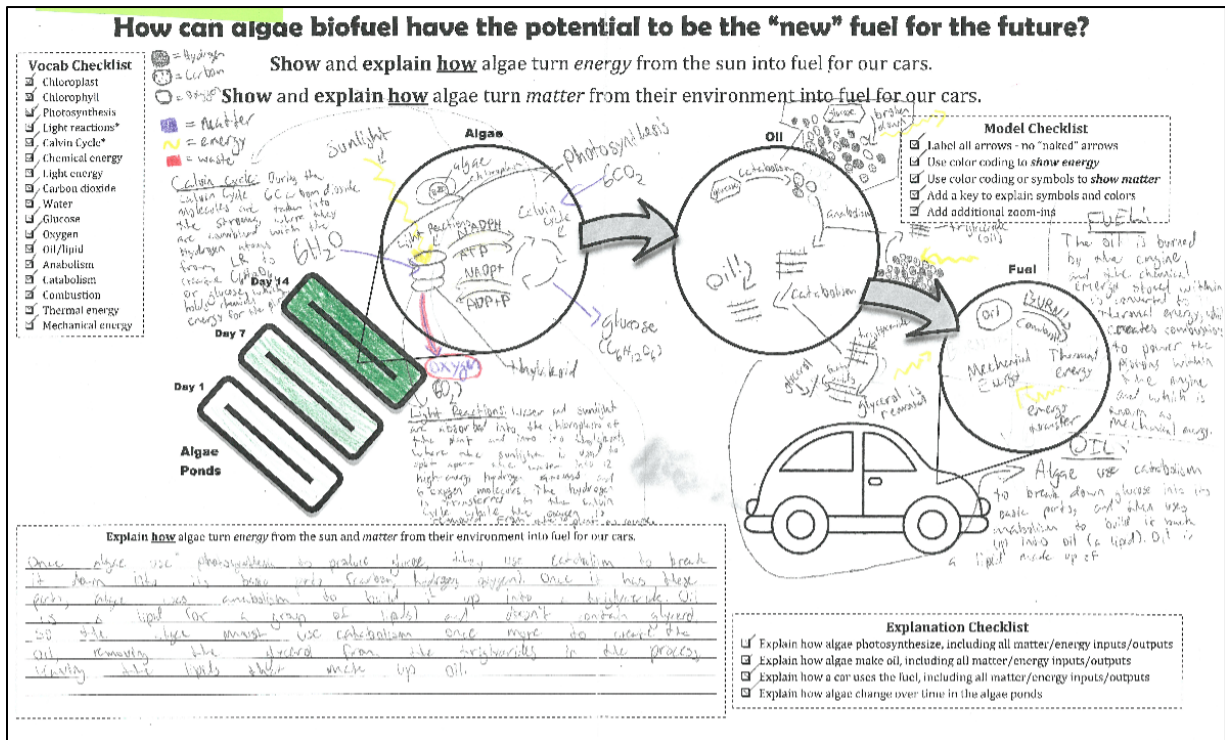 How can algae biofuel have the potential to be the “new” fuel for the future?
Show and explain how algae turn energy from the sun into fuel for our cars.
Show and explain how algae turn matter from their environment into fuel for our cars.
Vocab Checklist
Chloroplast
Chlorophyll
Photosynthesis
Light reactions*
Calvin Cycle*
Chemical energy
Light energy
Carbon dioxide
Water
Glucose
Oxygen
Oil/lipid
Anabolism
Catabolism
Combustion
Thermal energy
Mechanical energy
= Hydrogen
= Carbon
= Oxygen
= matter
= energy
= waste
Calvin Cycle: During the
Calvin Cycle 6C dioxide
molecules are taken into
the stroma, where they
are combined with the
hydrogen atoms
from LR to
create C6H12O6
or glucose which
holds chemical
energy for the
Sunlight
6H2O
Algae
algae
chloroplast
photosynthesis
6CO2
Light Reactions
Calvin
Cycle
NADPH
ATP
NADP+
ADP+P
glucose
(C6H12O6)
thylakoid
oxygen
(6O2)
Day 14
Day 7
Day 1
Algae
Ponds
Light Reactions: Water and sunlight
are absorbed into the chloroplast of
the plant and into its thylakoids
where the sunlight is used to
split apart the water into 12
high-energy hydrogen and
6 oxygen molecules. The hydrogen
transferred to the Calvin
Cycle while the oxygen is
Oil
glucose
broken
down
glucose
catabolism
anabolism
triglyceride
(oil)
Oil!!
catabolism
triglyceride
glycerol
glycerol is
removed
Model Checklist
Label all arrows - no “naked” arrows
Use color coding to show energy
Use color coding or symbols to show matter
Add a key to explain symbols and colors
Add additional zoom-ins
FUEL!
The oil is burned
by the engine
and the chemical
energy stored within
is converted to
thermal energy,
creates combustion
to power the
pistons within
the engine
and which is
known as
mechanical energy.
Fuel
Oil
BURN!
Combustion
Mechanical
Energy
Thermal
energy
energy
transfer
OIL:
Algae use catabolism
to break down glucose into its
basic parts, and then uses
anabolism to build it back
up into oil (a lipid). Oil is
a lipid made up of
Explain how algae turn energy from the sun and matter from their environment into fuel for our cars.
Once algae use photosynthesis to produce glucose, they use catabolism to break
it down into its basic parts (carbon, hydrogen, oxygen). Once it has these
parts, algae uses anabolism to build it up into a triglyceride. Oil
is a lipid (or a group of lipids) and doesn't contain glycerol
so the algae must use catabolism once more to create the
oil, removing the glycerol from the triglycerides in the process
leaving the lipids that make up oil.
Explanation Checklist
Explain how algae photosynthesize, including all matter/energy inputs/outputs
Explain how algae make oil, including all matter/energy inputs/outputs
Explain how a car uses the fuel, including all matter/energy inputs/outputs
Explain how algae change over time in the algae ponds